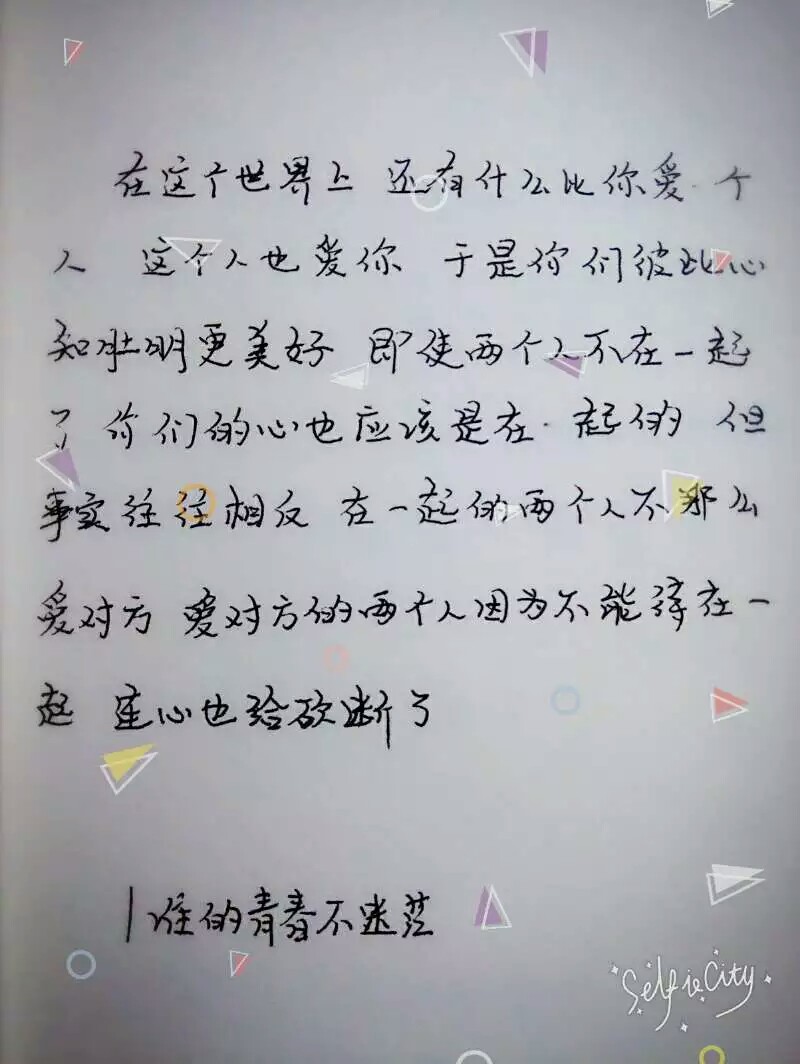 在这个世界上 还有什么比你爱一个
人 这个人也爱你 于是你们彼此心
知肚明更美好 即使两个人不在一起
了 你们的心也应该是在一起的 但
事实往往相反 在一起的两个人不那么
爱对方 爱对方的两个人因为不能待在一
起 连心也给砍断了
|谁的青春不迷茫
SelfieCity